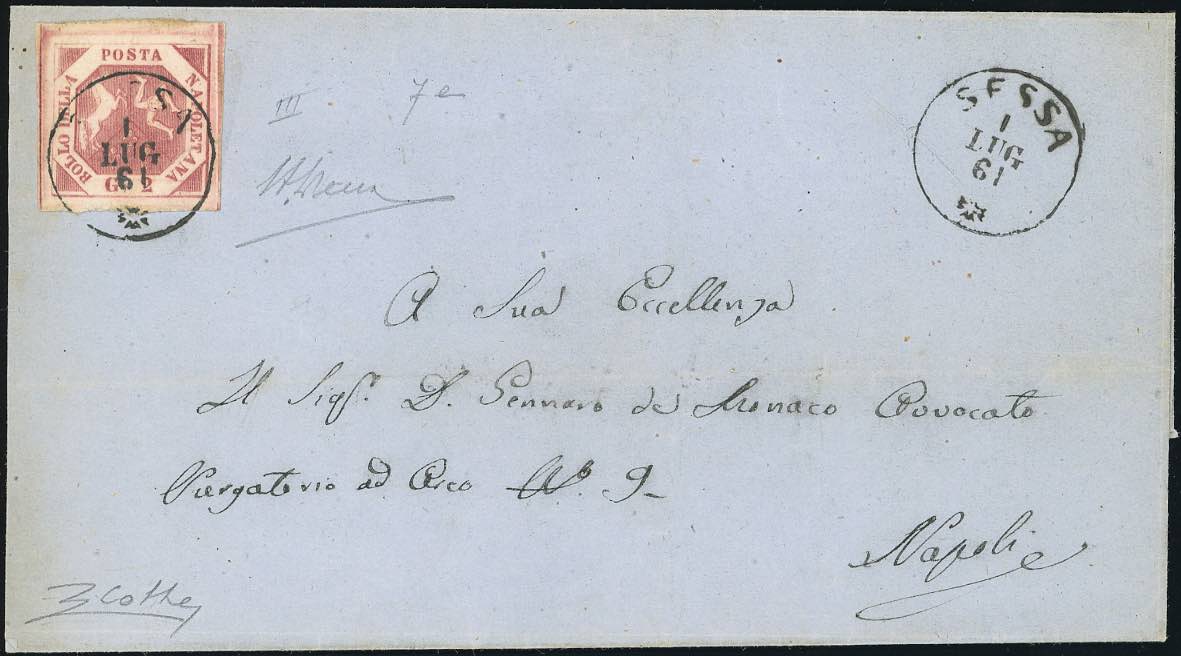 POSTA
NAPOLETANA
BOLLO DELLA
G. 2
SA
1
LUG
61
III 7e
SESSA
1
LUG
61
A Sua Eccellenza
Il Sigr. D. Gennaro de Monaco Avvocato
Purgatorio ad Arco N.º 9
Napoli